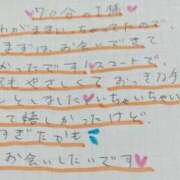 ♥70分のT様♥
わがままいっちゃってたので、
まずは、お会いできて
かったです!スコートで
もやさしくて おっきな手
としました♥いちゃいちゃ
て嬉しかったけど、
すぎたかも💦
お会いしたいです♥